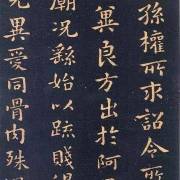 孫權所求詔令所
冀良方出於阿
廟况繇始以疏賤得
見異愛同骨肉殊